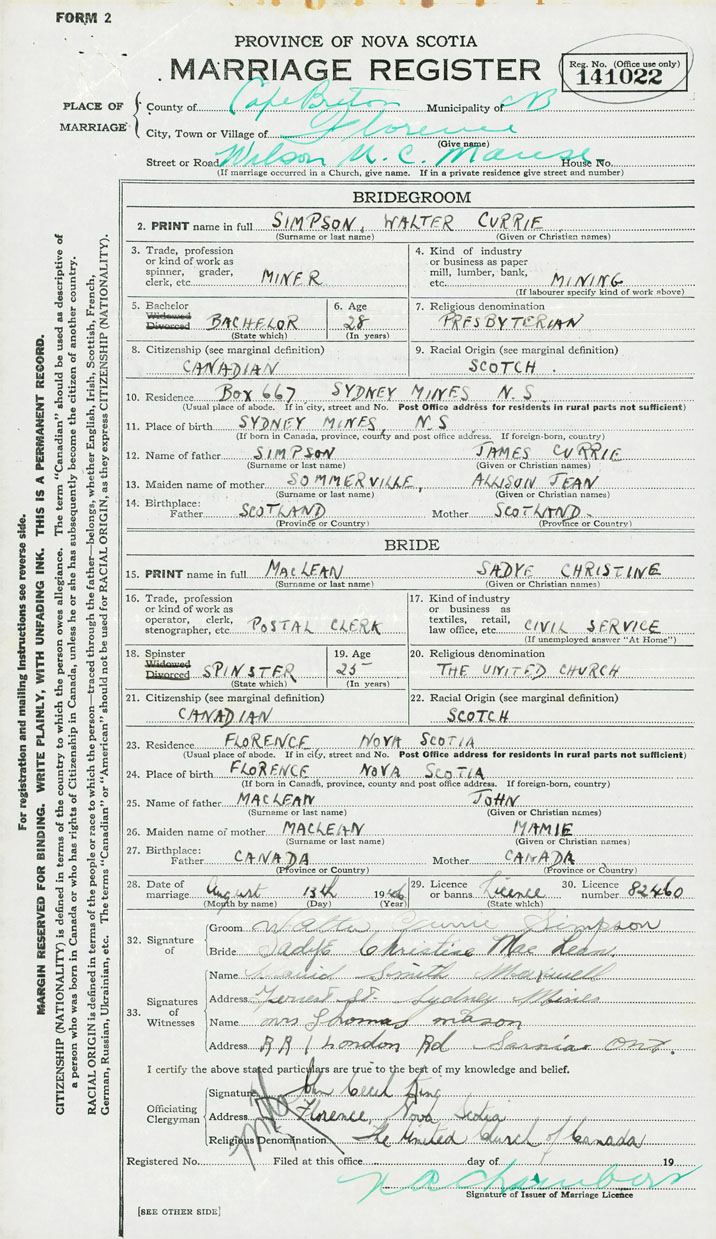 FORM 2
PROVINCE OF NOVA SCOTIA
MARRIAGE REGISTER
Reg. No. (Office use only)
141022
PLACE OF MARRIAGE
County of Cape Breton Municipality of CB
City, Town or Village of Florence
(Give name)
Street or Road Wilson U. C. Manse House No.
(If marriage occurred in a Church, give name. If in a private residence give street and number)
BRIDEGROOM
2. PRINT name in full SIMPSON, WALTER CURRIE
(Surname or last name) (Given or Christian names)
3. Trade, profession or kind of work as spinner, grader, clerk, etc. MINER
4. Kind of industry or business as paper mill, lumber, bank, etc. MINING
(If labourer specify kind of work above)
5. Bachelor Widowed Divorced BACHELOR
(State which)
6. Age 28
(In years)
7. Religious denomination
PRESBYTERIAN
8. Citizenship (see marginal definition)
CANADIAN
9. Racial Origin (see marginal definition)
SCOTCH.
10. Residence BOX 667 SYDNEY MINES N.S.
(Usual place of abode. If in city, street and No. Post Office address for residents in rural parts not sufficient)
11. Place of birth SYDNEY MINES, N.S
(If born in Canada, province, county and post office address. If foreign-born, country)
12. Name of father SIMPSON JAMES CURRIE
(Surname or last name) (Given or Christian names)
13. Maiden name of mother SOMMERVILLE, ALLISON JEAN
(Surname or last name) (Given or Christian names)
14. Birthplace:
Father SCOTLAND Mother SCOTLAND.
(Province or Country) (Province or Country)
BRIDE
15. PRINT name in full MACLEAN SADYE CHRISTINE
(Surname or last name) (Given or Christian names)
16. Trade, profession or kind of work as operator, clerk, stenographer, etc. POSTAL CLERK
17. Kind of industry or business as textiles, retail, law office, etc. CIVIL SERVICE
(If unemployed answer "At Home")
18. Spinster Widowed Divorced SPINSTER
(State which)
19. Age 25
(In years)
20. Religious denomination
THE UNITED CHURCH
21. Citizenship (see marginal definition)
CANADIAN
22. Racial Origin (see marginal definition)
SCOTCH
23. Residence FLORENCE NOVA SCOTIA
(Usual place of abode. If in city, street and No. Post Office address for residents in rural parts not sufficient)
24. Place of birth FLORENCE NOVA SCOTIA
(If born in Canada, province, county and post office address. If foreign-born, country)
25. Name of father MACLEAN JOHN
(Surname or last name) (Given or Christian names)
26. Maiden name of mother MACLEAN MAMIE
(Surname or last name) (Given or Christian names)
27. Birthplace:
Father CANADA Mother CANADA
(Province or Country) (Province or Country)
28. Date of marriage August 13th 1946
(Month by name) (Day) (Year)
29. Licence or banns Licence
(State which)
30. Licence number 82460
32. Signature of
Groom Walter Currie Simpson
Bride Sadye Christine Mac Lean.
33. Signatures of Witnesses
Name Smith Maxwell
Address Forrest St. Sydney Mines
Name Mrs Thomas Mason
Address RR 1 London Rd Sarnia Ont.
I certify the above stated particulars are true to the best of my knowledge and belief.
Officiating Clergyman
Signature John Cecil King
Address Florence, Nova Scotia
Religious Denomination The United Church of Canada
Registered No. Filed at this office day of 19
Signature of Issuer of Marriage Licence
[SEE OTHER SIDE]
For registration and mailing instructions see reverse side.
MARGIN RESERVED FOR BINDING. WRITE PLAINLY, WITH UNFADING INK. THIS IS A PERMANENT RECORD.
CITIZENSHIP (NATIONALITY) is defined in terms of the country to which the person owes allegiance. The term "Canadian" should be used as descriptive of
a person who was born in Canada or who has rights of Citizenship in Canada, unless he or she has subsequently become the citizen of another country.
RACIAL ORIGIN is defined in terms of the people or race to which the person—traced through the father—belongs, whether English, Irish, Scottish, French,
German, Russian, Ukrainian, etc. The terms "Canadian" or "American" should not be used for RACIAL ORIGIN, as they express CITIZENSHIP (NATIONALITY).